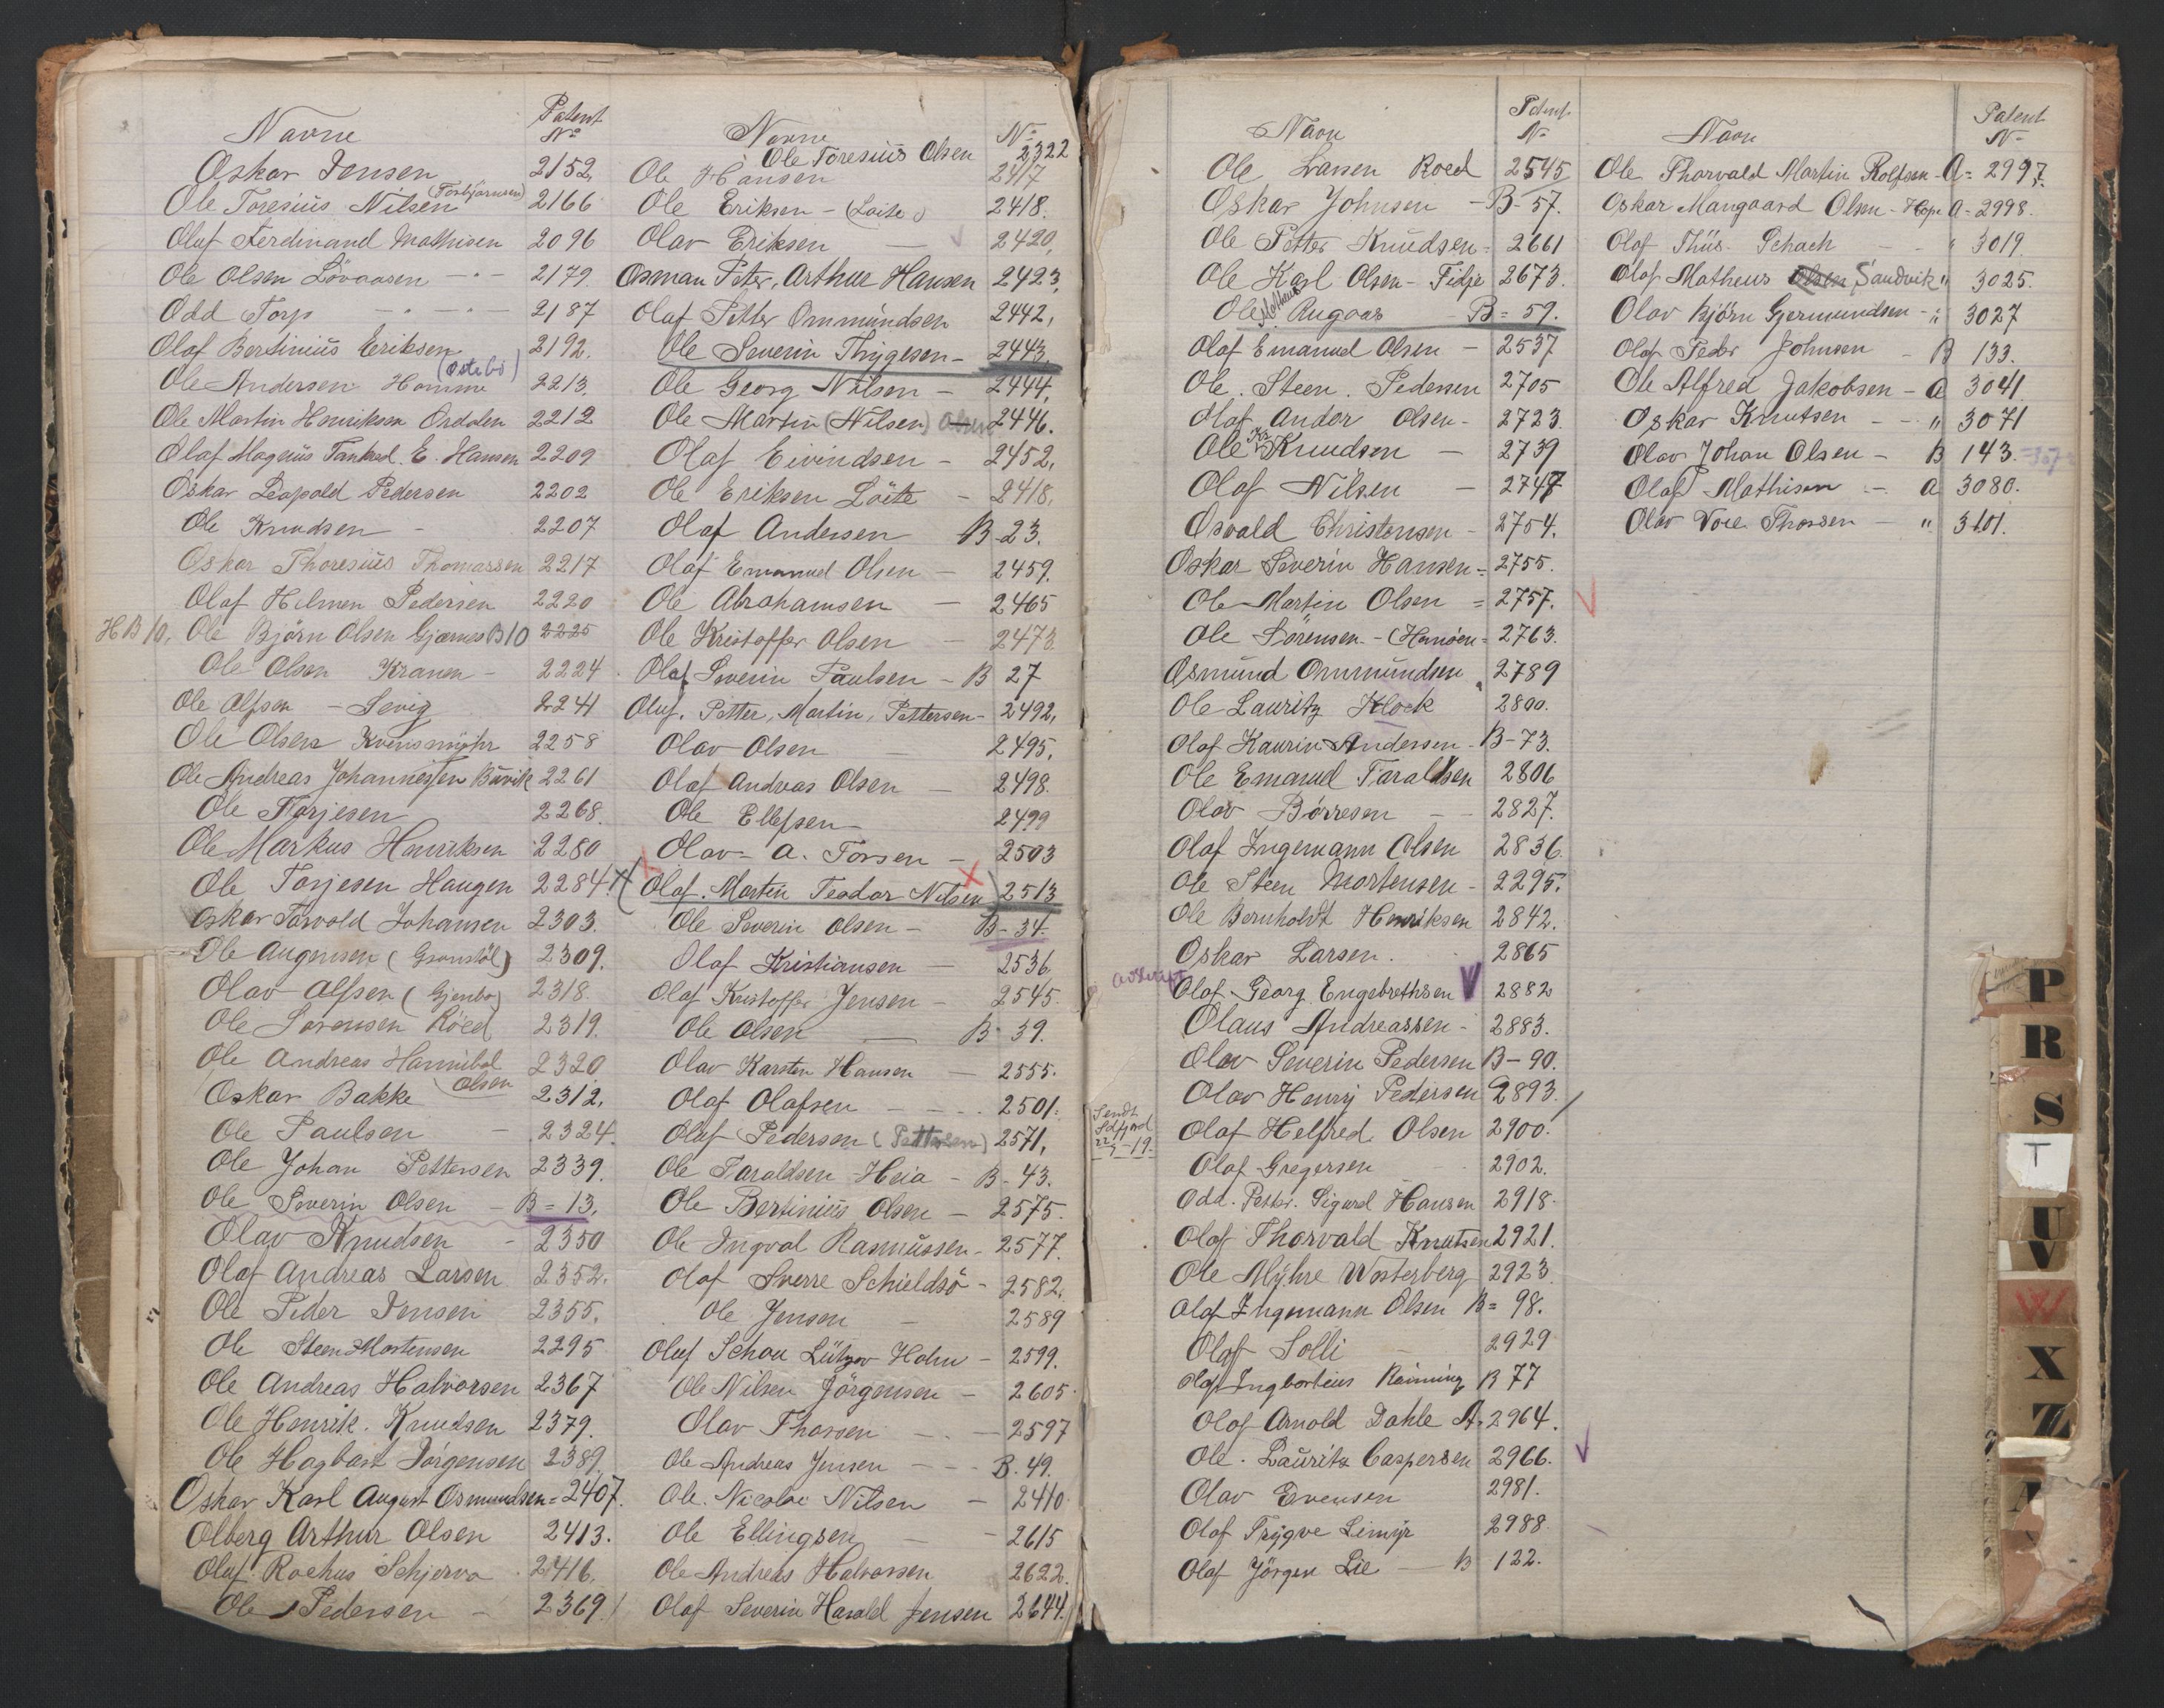 Navne Patent No
Oskar Jensen 2152
Ole Toresius Nilsen (Torbjörnsen) 2166
Oluf Ferdinand Mathisen 2096
Ole Olsen Lövaasen 2179
Odd Torp 2187
Olaf Bertinius Eriksen 2192.
Ole Andersen Homme (Östebö) 2213.
Ole Martin Henriksen Ordalen 2212
Olaf Magnus Tankred. E. Hansen 2209
Oskar Leopold Pedersen 2202
Ole Knudsen - 2207
Oskar Thoresius Thomassen 2217
Olaf Hilmen Pedersen 2220
H B 10. Ole Björn Olsen Gjærnes B10 2225
Ole Olsen Kranen - 2224
Ole Alfsen - Sevig 2241
Ole Olsen Kvernmyhr 2258
Ole Andreas Johannessen Buvik 2261
Ole Torjesen 2268.
Ole Markus Henriksen 2280
Ole Torjesen Haugen 2284
Oskar Torvald Johansen 2303.
Ole Augensen (Gronstöl) 2309.
Olav Alfsen (Gjenbo) 2318.
Ole Sorensen Röed 2319.
Ole Andreas Hannibal Olsen 2320
Oskar Bakke 2312.
Ole Paulsen - 2324.
Ole Johan Pettersen 2339.
Ole Severin Olsen - B = 13.
Olav Knudsen - 2350
Olaf Andreas Larsen 2352.
Ole Peder Jensen 2355.
Ole Steen Mortensen 2295
Ole Andreas Halvorsen 2367
Ole Henrik. Knudsen 2379.
Ole Hagbart Jörgensen 2389.
Oskar Karl August Osmundsen = 2407.
Olberg Arthur Olsen 2413.
Oluf Rochus Schjervo 2416.
Ole Pedersen - 2369.
Navne No
Ole Toresius Olsen 2322
Ole Hansen 2417
Ole Eriksen - (Loite) 2418.
Olav Eriksen — 2420.
Osman Peter, Arthur Hansen 2423.
Oluf Petter Ommundsen 2442.
Ole Severin Thygesen - 2443.
Ole Georg Nilsen - 2444.
Ole Martin (Nilsen) Olsen 2446.
Olaf Eivindsen - 2452.
Ole Eriksen Löite - 2418.
Olaf Andersen B-23.
Olaf Emanuel Olsen - 2459.
Ole Abrahamsen — 2465
Ole Kristoffer Olsen — 2473.
Olaf Severin Paulsen - B 27
Oluf. Petter, Martin, Pettersen - 2492.
Olav Olsen — 2495.
Olaf Andreas Olsen — 2498.
Ole Ellefsen — 2499
Olav - A. Torsen - 2503
Olaf. Martin Teodor Nilsen 2513
Ole Severin Olsen - B-34.
Olaf Kristiansen — 2536.
Olaf Kristoffer Jensen - 2545.
Ole Olsen — B- 39.
Olav Karsten Hansen — 2555.
Olaf Olafsen - - - 2501.
Oluf Pedersen (Pettersen) 2571.
Ole Taraldsen Heia - B- 43.
Ole Bertinius Olsen - 2575.
Ole Ingval Rasmussen - 2577.
Olaf Sverre Schieldsö - 2582.
Ole Jensen - 2589
Oluf Schou Lützow Holm - 2599.
Ole Nilsen Jörgensen - 2605
Olav Thorsen - - 2597
Ole Andreas Jensen - - - B. 49.
Ole. Nicolai Nilsen - 2410
Ole Ellingsen — 2615
Ole Andreas Halvorsen 2622.
Olaf Severin Harald Jensen 2644.
Navn Patent No
Ole Larsen Roed 2545
Oskar Johnsen - B- 57.
Ole Petter Knudsen - 2661
Ole Karl Olsen - Fidje 2673.
Ole Rugaas B = 59.
Olaf Emanuel Olsen - 2537
Ole. Steen. Pedersen 2705
Olaf Andor Olsen - 2723.
Ole Kr Knudsen - 2739
Olaf Nilsen - 2747
Osvald Christensen - 2754.
Oskar Severin Hansen = 2755.
Ole Martin Olsen = 2757.
Ole Sörensen - (Hansen = 2763.
Osmund Ommundsen 2789
Ole Lauritz Klock 2800.
Olaf Kaurin Andersen - B-73.
Ole Emanuel Taraldsen 2806
Olav Börresen - - 2827.
Olaf Ingemann Olsen 2836.
Ole Steen Mortensen - 2295.
Ole Bernholdt Henriksen 2842.
Oskar Larsen. 2865
Olaf Georg Engebrethsen V 2882
Olaus Andreassen - 2883.
Olav Severin Pedersen B-90.
Olav Henry Pedersen 2893.
Sendt 22/5-19.
Olaf Helfred Olsen 2900.
Olaf Gregersen 2902.
Odd. Petter. Sigurd Hansen 2918.
Olaf Thorvald Knutsen 2921.
Ole Myhre Westerberg 2923.
Olaf Ingemann Olsen B = 98.
Olaf Solli - 2929
Olaf Ingbortius Rönning B 77
Olaf Arnold Dahle A. 2964.
Ole. Lauritz Caspersen 2966.
Olav Evensen 2981.
Olaf Trygve Limyr 2988.
Olaf Jörgen Lie — B 122.
Navn Patent No
Ole Thorvald Martin Rolfsen - A = 2997.
Oskar Mangaard Olsen - Hope A = 2998.
Olaf Thiis Schach - - " 3019.
Olaf Matheus Olsen Sandvik " 3025.
Olav Björn Gjermundsen - " 3027
Olaf Peder Johnsen - B 133.
Ole Alfred Jakobsen - A 3041
Oskar Knutsen - - " 3071
Olav Johan Olsen - B 143.
Olaf Mathisen - A 3080.
Olav Voie Thorsen - " 3101.
P
R
S
T
U
V
W
X
Z